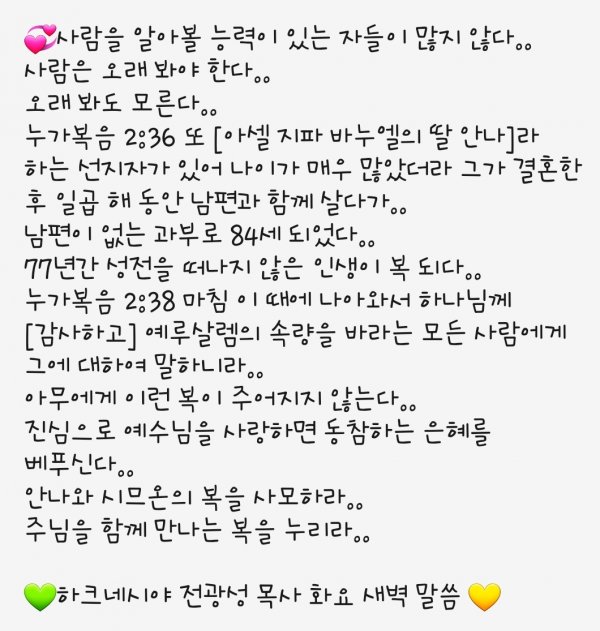 💞사람을 알아볼 능력이 있는 자들이 많지 않다..
사람은 오래 봐야 한다..
오래 봐도 모른다..
누가복음 2:36 또 [아셀 지파 바누엘의 딸 안나]라
하는 선지자가 있어 나이가 매우 많았더라 그가 결혼한
후 일곱 해 동안 남편과 함께 살다가..
남편이 없는 과부로 84세 되었다..
77년간 성전을 떠나지 않은 인생이 복 되다..
누가복음 2:38 마침 이 때에 나아와서 하나님께
[감사하고] 예루살렘의 속량을 바라는 모든 사람에게
그에 대하여 말하니라..
아무에게 이런 복이 주어지지 않는다..
진심으로 예수님을 사랑하면 동참하는 은혜를
베푸신다..
안나와 시므온의 복을 사모하라..
주님을 함께 만나는 복을 누리라..
💚하크네시야 전광성 목사 화요 새벽 말씀 💛